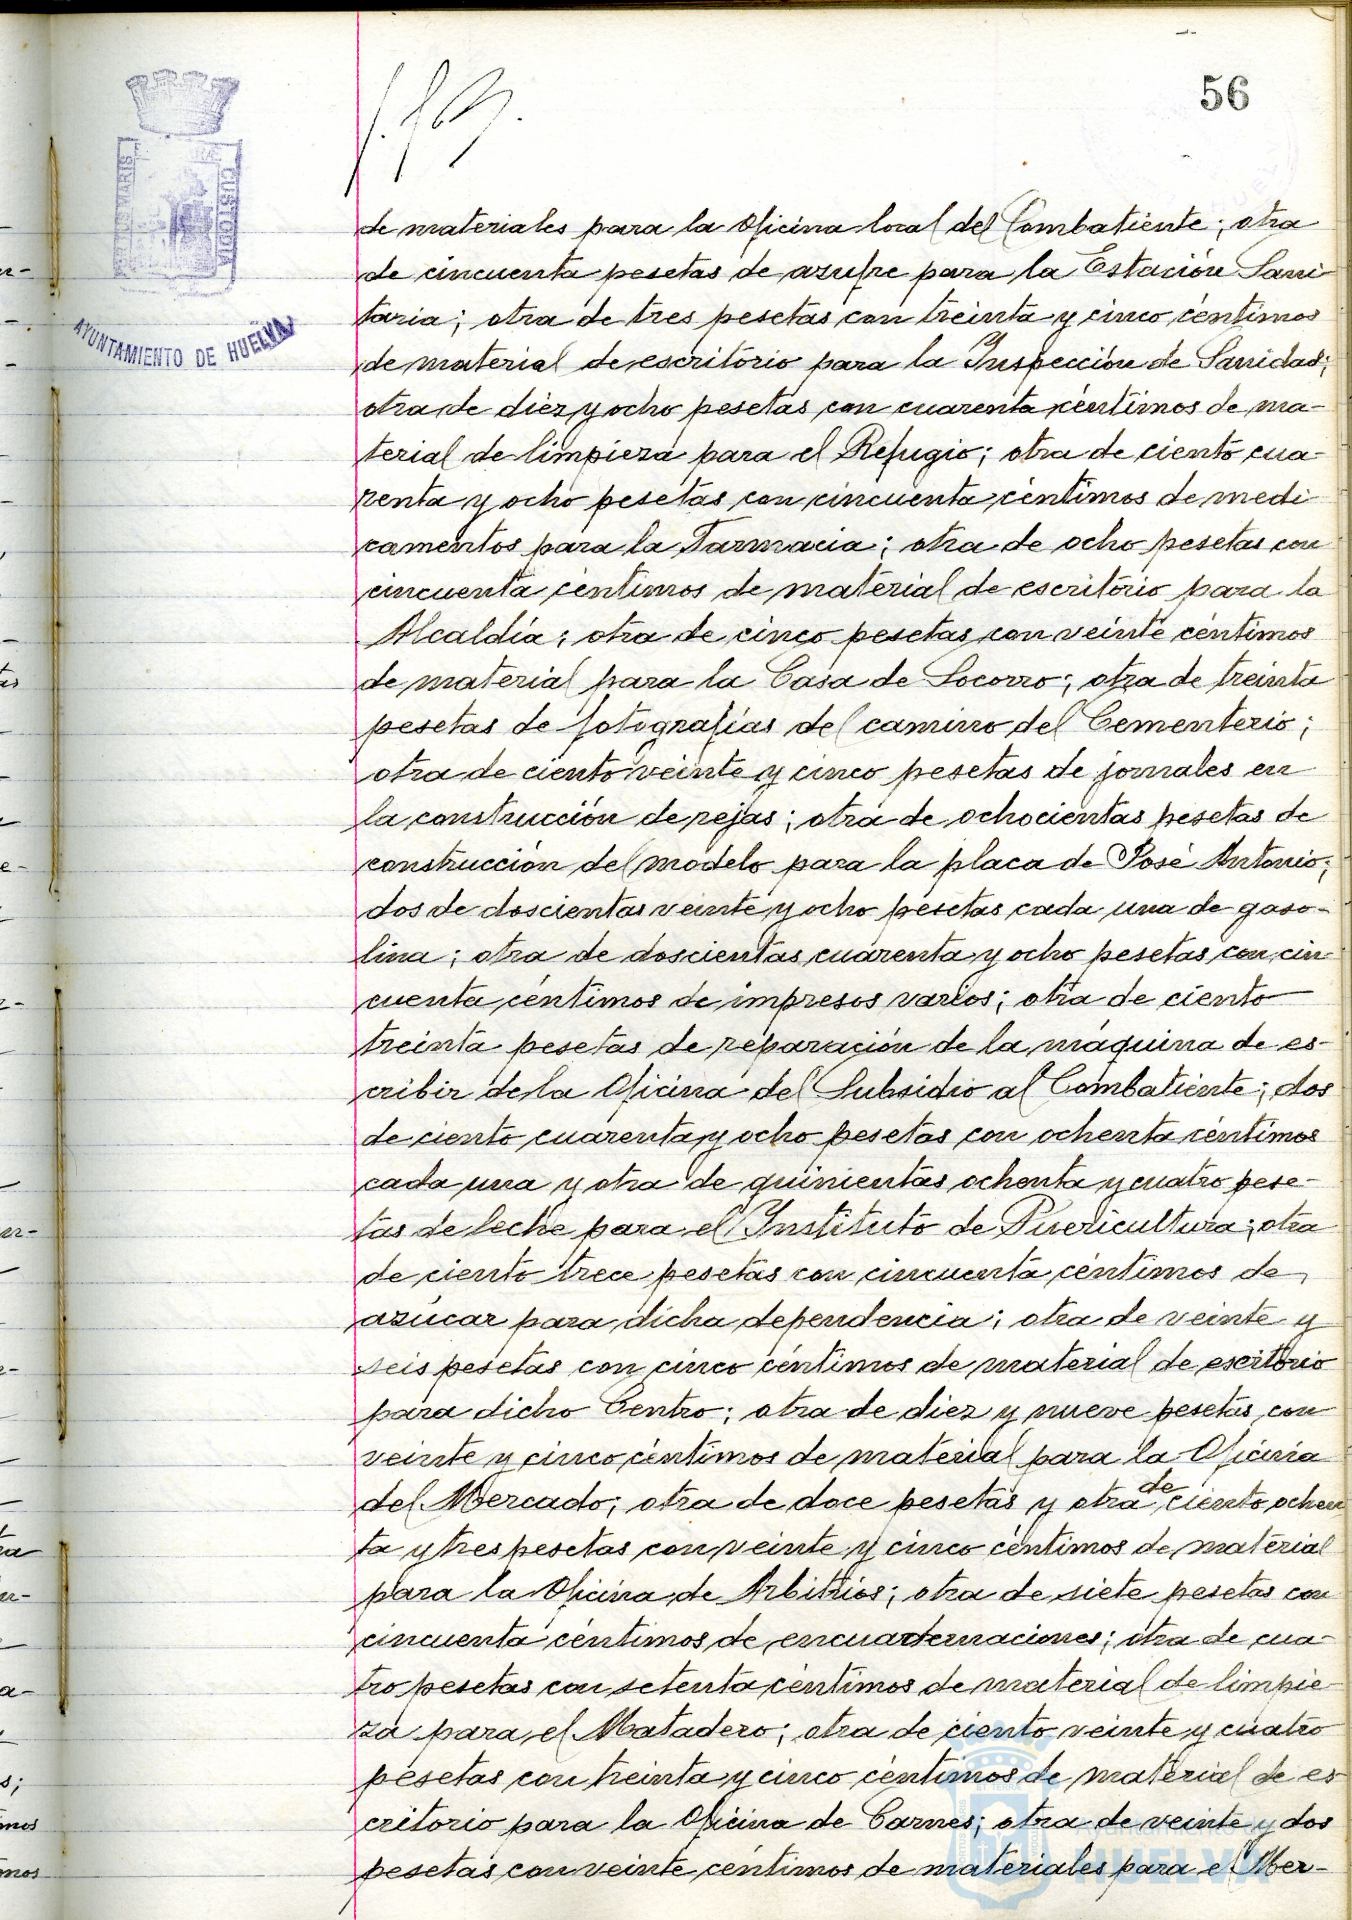 56
PORTUS MARIS
CUSTODIA
AYUNTAMIENTO DE HUELVA
de materiales para la Oficina local del Combatiente; otra
de cincuenta pesetas de azufre para la Estación Sani-
taria; otra de tres pesetas con treinta y cinco céntimos
de material de escritorio para la Inspección de Sanidad;
otra de diez y ocho pesetas con cuarenta céntimos de ma-
terial de limpieza para el Refugio; otra de ciento cua-
renta y ocho pesetas con cincuenta céntimos de medi
camentos para la Farmacia; otra de ocho pesetas con
cincuenta céntimos de material de escritorio para la
Alcaldía; otra de cinco pesetas con veinte céntimos
de material para la Casa de Socorro; otra de treinta
pesetas de fotografías del camino del Cementerio;
otra de ciento veinte y cinco pesetas de jornales en
la construcción de rejas; otra de ochocientas pesetas de
construcción del modelo para la placa de José Antonio;
dos de doscientas veinte y ocho pesetas cada una de gaso-
lina; otra de doscientas cuarenta y ocho pesetas con cin-
cuenta céntimos de impresos varios; otra de ciento
treinta pesetas de reparación de la máquina de es-
cribir de la Oficina del Subsidio al Combatiente; dos
de ciento cuarenta y ocho pesetas con ochenta céntimos
cada una y otra de quinientas ochenta y cuatro pese-
tas de leche para el Instituto de Puericultura; otra
de ciento trece pesetas con cincuenta céntimos de
azúcar para dicha dependencia; otra de veinte y
seis pesetas con cinco céntimos de material de escritorio
para dicho Centro; otra de diez y nueve pesetas con
veinte y cinco céntimos de material para la Oficina
del Mercado; otra de doce pesetas y otra de ciento ochen
ta y tres pesetas con veinte y cinco céntimos de material
para la Oficina de Arbitrios; otra de siete pesetas con
cincuenta céntimos de encuadernaciones; otra de cua-
tro pesetas con setenta céntimos de material de limpie-
za para el Matadero; otra de ciento veinte y cuatro
pesetas con treinta y cinco céntimos de material de es
critorio para la Oficina de Carnes; otra de veinte y dos
pesetas con veinte céntimos de materiales para el Mer-
Ayuntamiento de
HUELVA